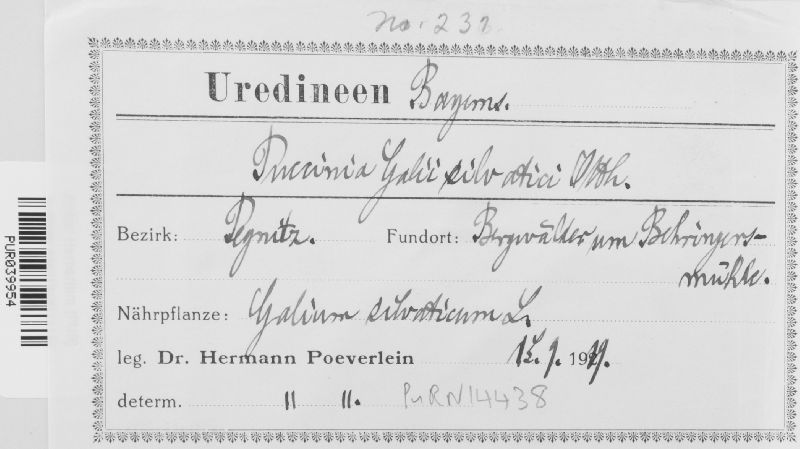 No. 232
Uredineen Bayerns.
Puccinia Galii silvatici Otth.
Bezirk: Pegnitz. Fundort: Bergwälder um Behringers-
mühle.
Nährpflanze: Galium silvaticum L.
leg. Dr. Hermann Poeverlein
determ. " ".
PuRN14438
PUR039954